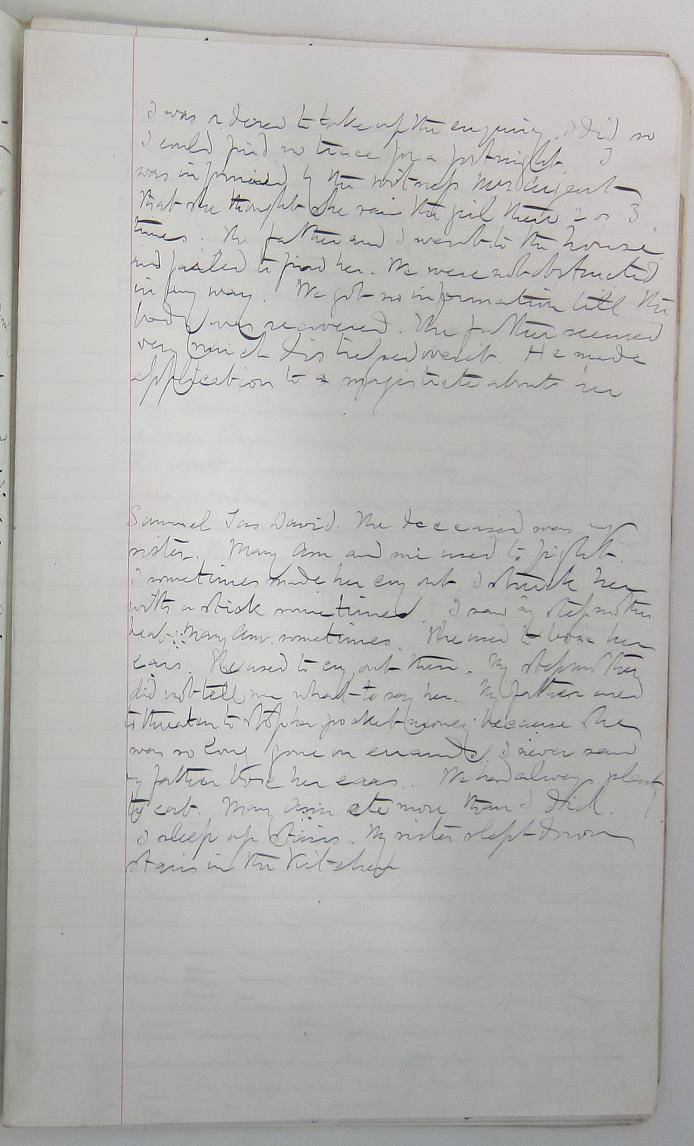 I was ordered to take up the enquiry. I did so
I could find no trace for a fortnight. I
was informed by the witness Mrs
that she thought she saw the girl there 2 or 3
times. The father and I went to the house
and failed to find her. We were not obstructed
in any way. We got no information till the
body was recovered. The father seemed
very much distressed over it. He made
application to a magistrate about her
Samuel Jas David. The deceased was my
sister. Mary Ann and me used to fight.
I sometimes made her cry out. I struck her
with a stick sometimes. I saw my stepmother
beat Mary Ann sometimes. She used to box her
ears. She used to cry out then. My stepmother
did not tell me what to say here. My father used
to threaten to stop her pocket money because she
was so long gone on errands. I never saw
my father box her ears. We had always plenty
to eat. Mary Ann ate more than I did.
I sleep up stairs. My sister slept down
stairs in the kitchen